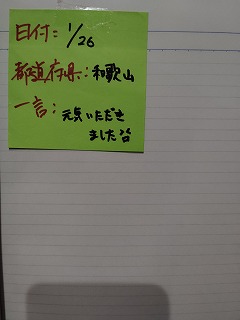 日付: 1/26
都道府県: 和歌山
一言: 元気いただき
ました